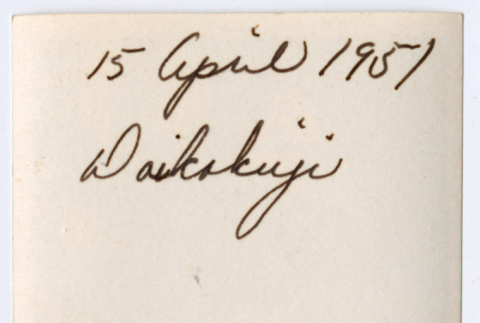 15 April 1951
Daikokuji